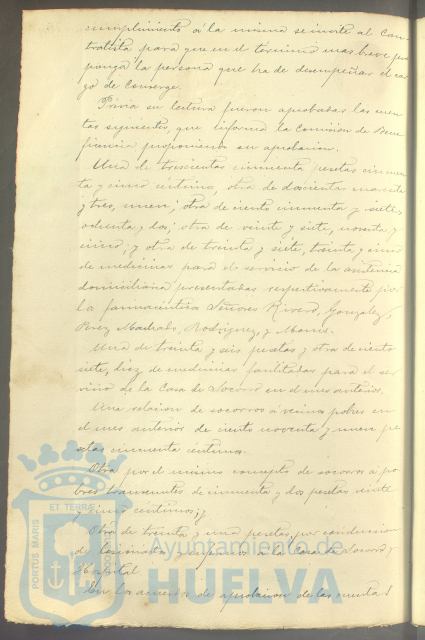 cumplimiento á la misma se invite al Con-
tratista para que en el término mas breve pro-
ponga la persona que ha de desempeñar el car-
go de Conserge.
Prévia su lectura fueron aprobadas las cuen-
tas siguientes, que informa la Comisión de Bene-
ficencia proponiendo su aprobacion.
Una de trescientas cincuenta pesetas cincuen-
ta y cinco céntimos, otra de doscientas noventa
y tres, nueve; otra de ciento cincuenta y siete,
ochenta y dos; otra de veinte y siete, noventa y
cinco; y otra de treinta y siete, treinta y cinco
de medicinas para el servicio de la asistencia
domiciliaria presentadas respectivamente por
los farmacéuticos Señores Rivero, Gonzalez,
Perez Machado, Rodriguez, y Monis.
Una de treinta y seis pesetas y otra de ciento
siete, diez, de medicinas facilitadas para el ser-
vicio de la Casa de Socorro en el mes anterior.
Una relacion de socorros á vecinos pobres en
el mes anterior de ciento noventa y nueve pe-
setas cincuenta céntimos.
Otra por el mismo concepto de socorros á po-
bres transeuntes de cincuenta y dos pesetas veinte
y cinco céntimos; y
Otra de treinta y una pesetas, por conduccion
de lesionados y enfermos á la Casa de Socorro y
Hospital.
En los acuerdos de aprobacion de las cuentas
PORTUS MARIS
ET TERRÆ
Ayuntamiento de
HUELVA